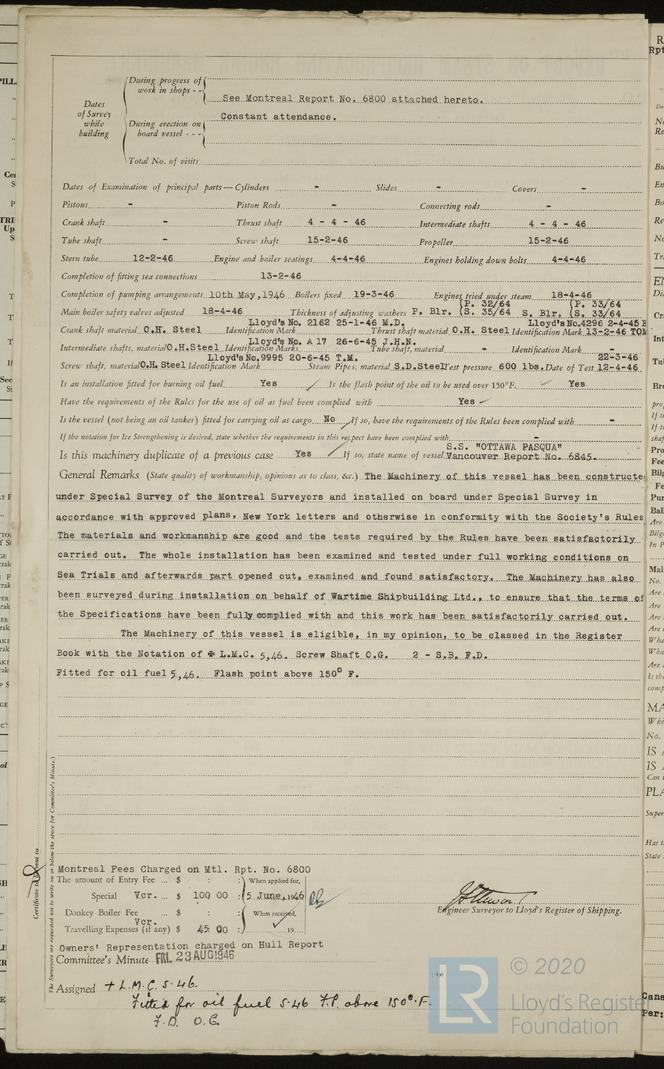 During progress of
work in shops - -
See Montreal Report No. 6800 attached hereto.
Dates
of Survey
while
building
During erection on
board vessel - - -
Constant attendance.
Total No. of visits
Dates of Examination of principal parts—Cylinders - Slides - Covers -
Pistons - Piston Rods - Connecting rods -
Crank shaft - Thrust shaft 4 - 4 - 46 Intermediate shafts 4 - 4 - 46
Tube shaft - Screw shaft 15-2-46 Propeller 15-2-46
Stern tube 12-2-46 Engine and boiler seatings 4-4-46 Engines holding down bolts 4-4-46
Completion of fitting sea connections 13-2-46
Completion of pumping arrangements 10th May, 1946 Boilers fixed 19-3-46 Engines tried under steam 18-4-46
(P. 32/64 (P. 33/64
Main boiler safety valves adjusted 18-4-46 Thickness of adjusting washers P. Blr. (S. 35/64 S. Blr. (S. 33/64
Lloyd's No. 2162 25-1-46 M.D. Lloyd's No.4296 2-4-45
Crank shaft material O.H. Steel Identification Mark Thrust shaft material O.H. Steel Identification Mark 13-2-46
Lloyd's No. A 17 26-6-45 J.H.N.
Intermediate shafts, material O.H.Steel Identification Marks Tube shaft, material - Identification Mark
Lloyd's No.9995 20-6-45 T.M. 22-3-46
Screw shaft, material O.H. Steel Identification Mark Steam Pipes, material S.D.Steel Test pressure 600 lbs. Date of Test 12-4-46
Is an installation fitted for burning oil fuel Yes ✓ Is the flash point of the oil to be used over 150°F. ✓ Yes
Have the requirements of the Rules for the use of oil as fuel been complied with Yes ✓
Is the vessel (not being an oil tanker) fitted for carrying oil as cargo No If so, have the requirements of the Rules been complied with -
If the notation for Ice Strengthening is desired, state whether the requirements in this respect have been complied with -
S.S. "OTTAWA PASQUA"
Is this machinery duplicate of a previous case Yes If so, state name of vessel Vancouver Report No. 6845.
General Remarks (State quality of workmanship, opinions as to class, &c.) The Machinery of this vessel has been constructe
under Special Survey of the Montreal Surveyors and installed on board under Special Survey in
accordance with approved plans, New York letters and otherwise in conformity with the Society's Rules
The materials and workmanship are good and the tests required by the Rules have been satisfactorily
carried out. The whole installation has been examined and tested under full working conditions on
Sea Trials and afterwards part opened out, examined and found satisfactory. The Machinery has also
been surveyed during installation on behalf of Wartime Shipbuilding Ltd., to ensure that the terms of
the Specifications have been fully complied with and this work has been satisfactorily carried out.
The Machinery of this vessel is eligible, in my opinion, to be classed in the Register
Book with the Notation of ✠ L.M.C. 5,46. Screw Shaft O.G. 2 - S.B. F.D.
Fitted for oil fuel 5,46. Flash point above 150° F.
Montreal Fees Charged on Mtl. Rpt. No. 6800
The amount of Entry Fee ... $ : : When applied for,
Special Vcr. ... $ 100 00 : 5 June, 1946
Donkey Boiler Fee ... $ : : When received,
Vcr.
Travelling Expenses (if any) $ 45 00 : 19
Engineer Surveyor to Lloyd's Register of Shipping.
Owners' Representation charged on Hull Report
Committee's Minute FRI. 23 AUG 1946
Assigned + L.M.C. 5.46.
Fitted for oil fuel 5.46 F.P. above 150°.F.
F.D. O.G.
The Surveyors are requested not to write on or below the space for Committee's Minute.
LR
© 2020
Lloyd's Register
Foundation